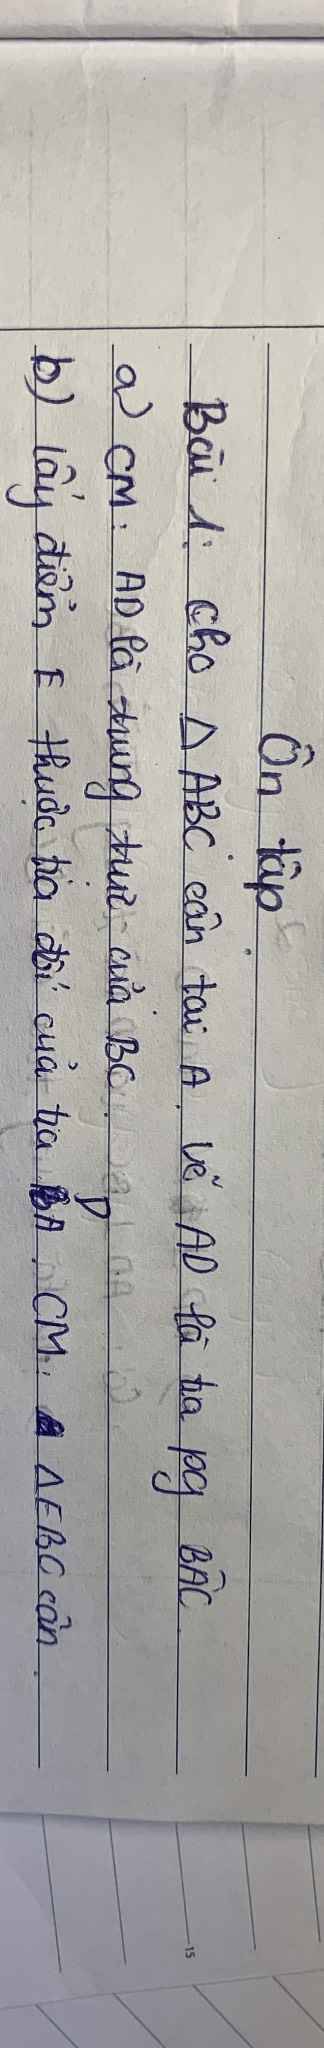 Ôn tập
Bài 1: cho △ABC cân tại A. vẽ AD là tia pg BÂC.
a) CM: AD là trung trực của BC.
b) lấy điểm E thuộc tia đối của tia DA. CM: △EBC cân.
15